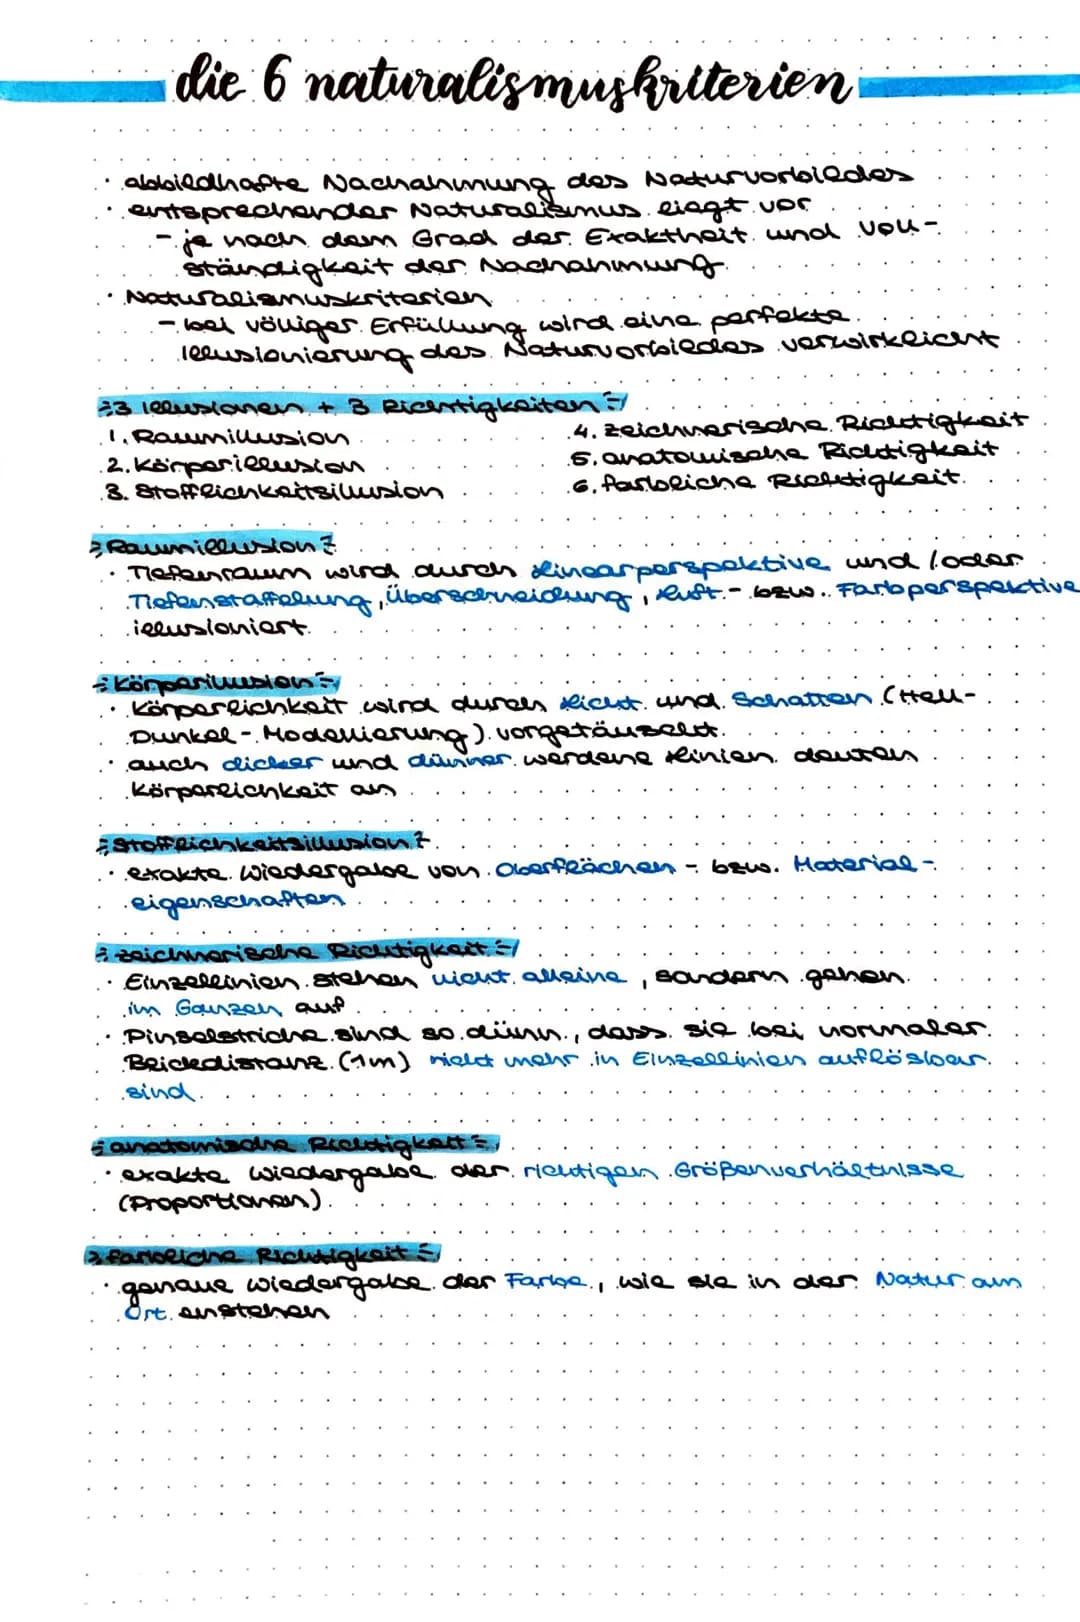 die 6 naturalismuskriterien
· abbildhafte Nachahmung des Naturvorbildes
· entsprechender Naturalismus liegt vor
- je nach dem Grad der Exaktheit und voll-
ständigkeit der Nachahmung
· Naturalismuskriterien
- bei völliger Erfüllung wird eine perfekte
Illusionierung des Naturvorbildes verwirklicht
3 Illusionen + 3 Richtigkeiten
1. Raumillusion
2. Körperillusion
3. Stofflichkeitsillusion
4. zeichnerische Richtigkeit
5. anatomische Richtigkeit
6. farbliche Richtigkeit
Raumillusion
· Tiefenraum wird durch Linearperspektive und /oder
Tiefenstaffelung, Überschneidung, Luft- bzw. Farbperspektive
illusioniert
Körperillusion
· Körperlichkeit wird durch Licht und Schatten (Hell-
Dunkel-Modellierung) vorgetäuscht
· auch dicker und dünner werdene Linien deuten
Körperlichkeit an
Stofflichkeitsillusion
· exakte Wiedergabe von Oberflächen- bzw. Material-
eigenschaften
zeichnerische Richtigkeit
· Einzellinien stehen nicht alleine, sondern gehen
im Ganzen auf
· Pinselstriche sind so dünn, dass sie bei normaler
Blickdistanz (1m) nicht mehr in Einzellinien auflösbar
sind
anatomische Richtigkeit
· exakte Wiedergabe der richtigen Größenverhältnisse
(Proportionen)
farbliche Richtigkeit
· genaue Wiedergabe der Farbe, wie sie in der Natur am
Ort enstehen